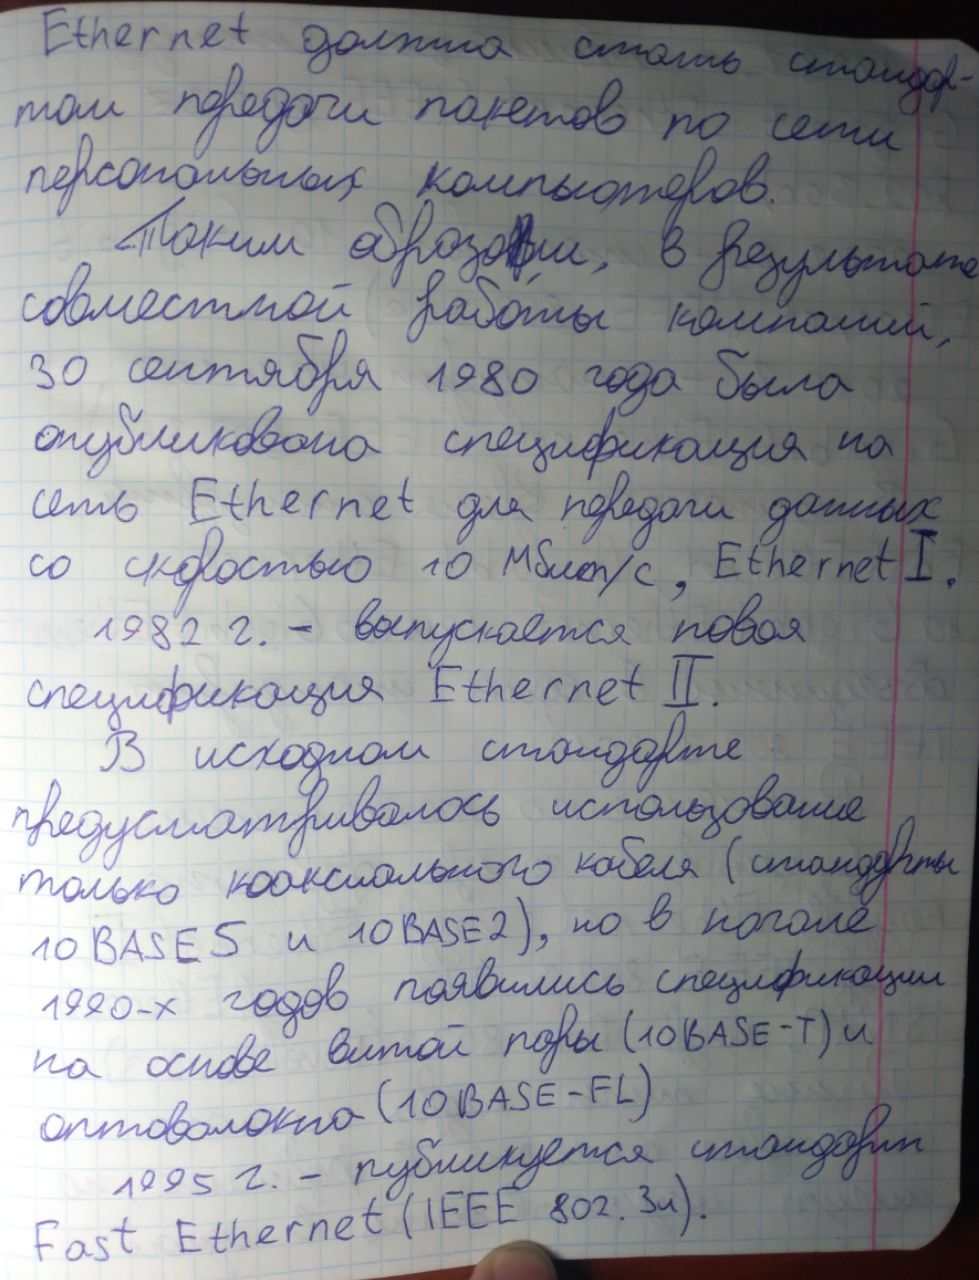 Ethernet должна стать стандар-
том передачи пакетов по сети
персональных компьютеров.
Таким образом, в результате
совместной работы компаний,
30 сентября 1980 года была
опубликована спецификация на
сеть Ethernet для передачи данных
со скоростью 10 Мбит/с, Ethernet I.
1982 г. - выпускается новая
спецификация Ethernet II.
В исходном стандарте
предусматривалось использование
только коаксиального кабеля (стандарты
10BASE5 и 10BASE2), но в начале
1990-х годов появились спецификации
на основе витой пары (10BASE-T) и
оптоволокна (10BASE-FL)
1995 г. - публикуется стандарт
Fast Ethernet (IEEE 802.3u).